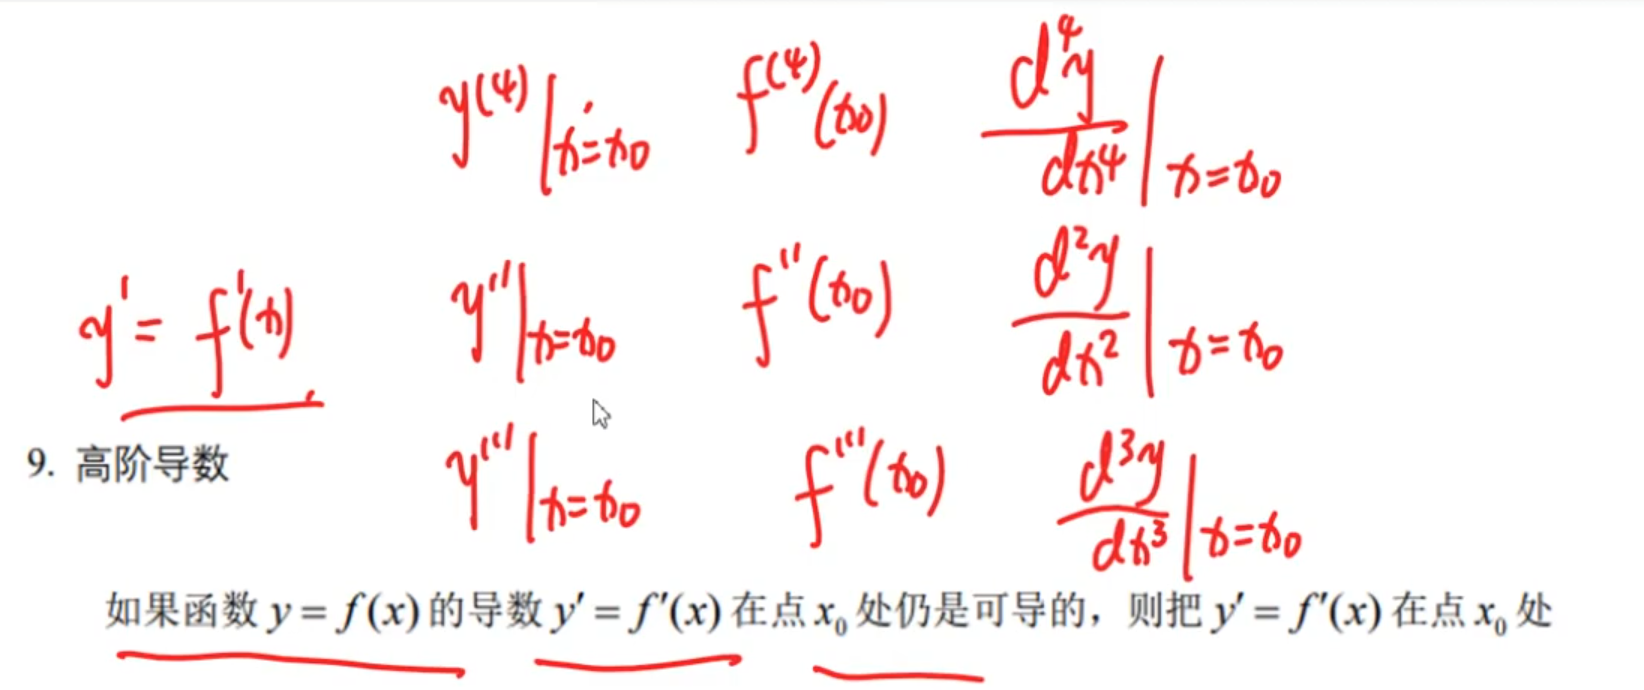 y⁽⁴⁾|x=x₀ f⁽⁴⁾(x₀) d⁴y/dx⁴|x=x₀
y' = f'(x) y''|x=x₀ f''(x₀) d²y/dx²|x=x₀
9. 高阶导数 y'''|x=x₀ f'''(x₀) d³y/dx³|x=x₀
如果函数 y = f(x) 的导数 y′ = f′(x) 在点 x₀ 处仍是可导的，则把 y′ = f′(x) 在点 x₀ 处